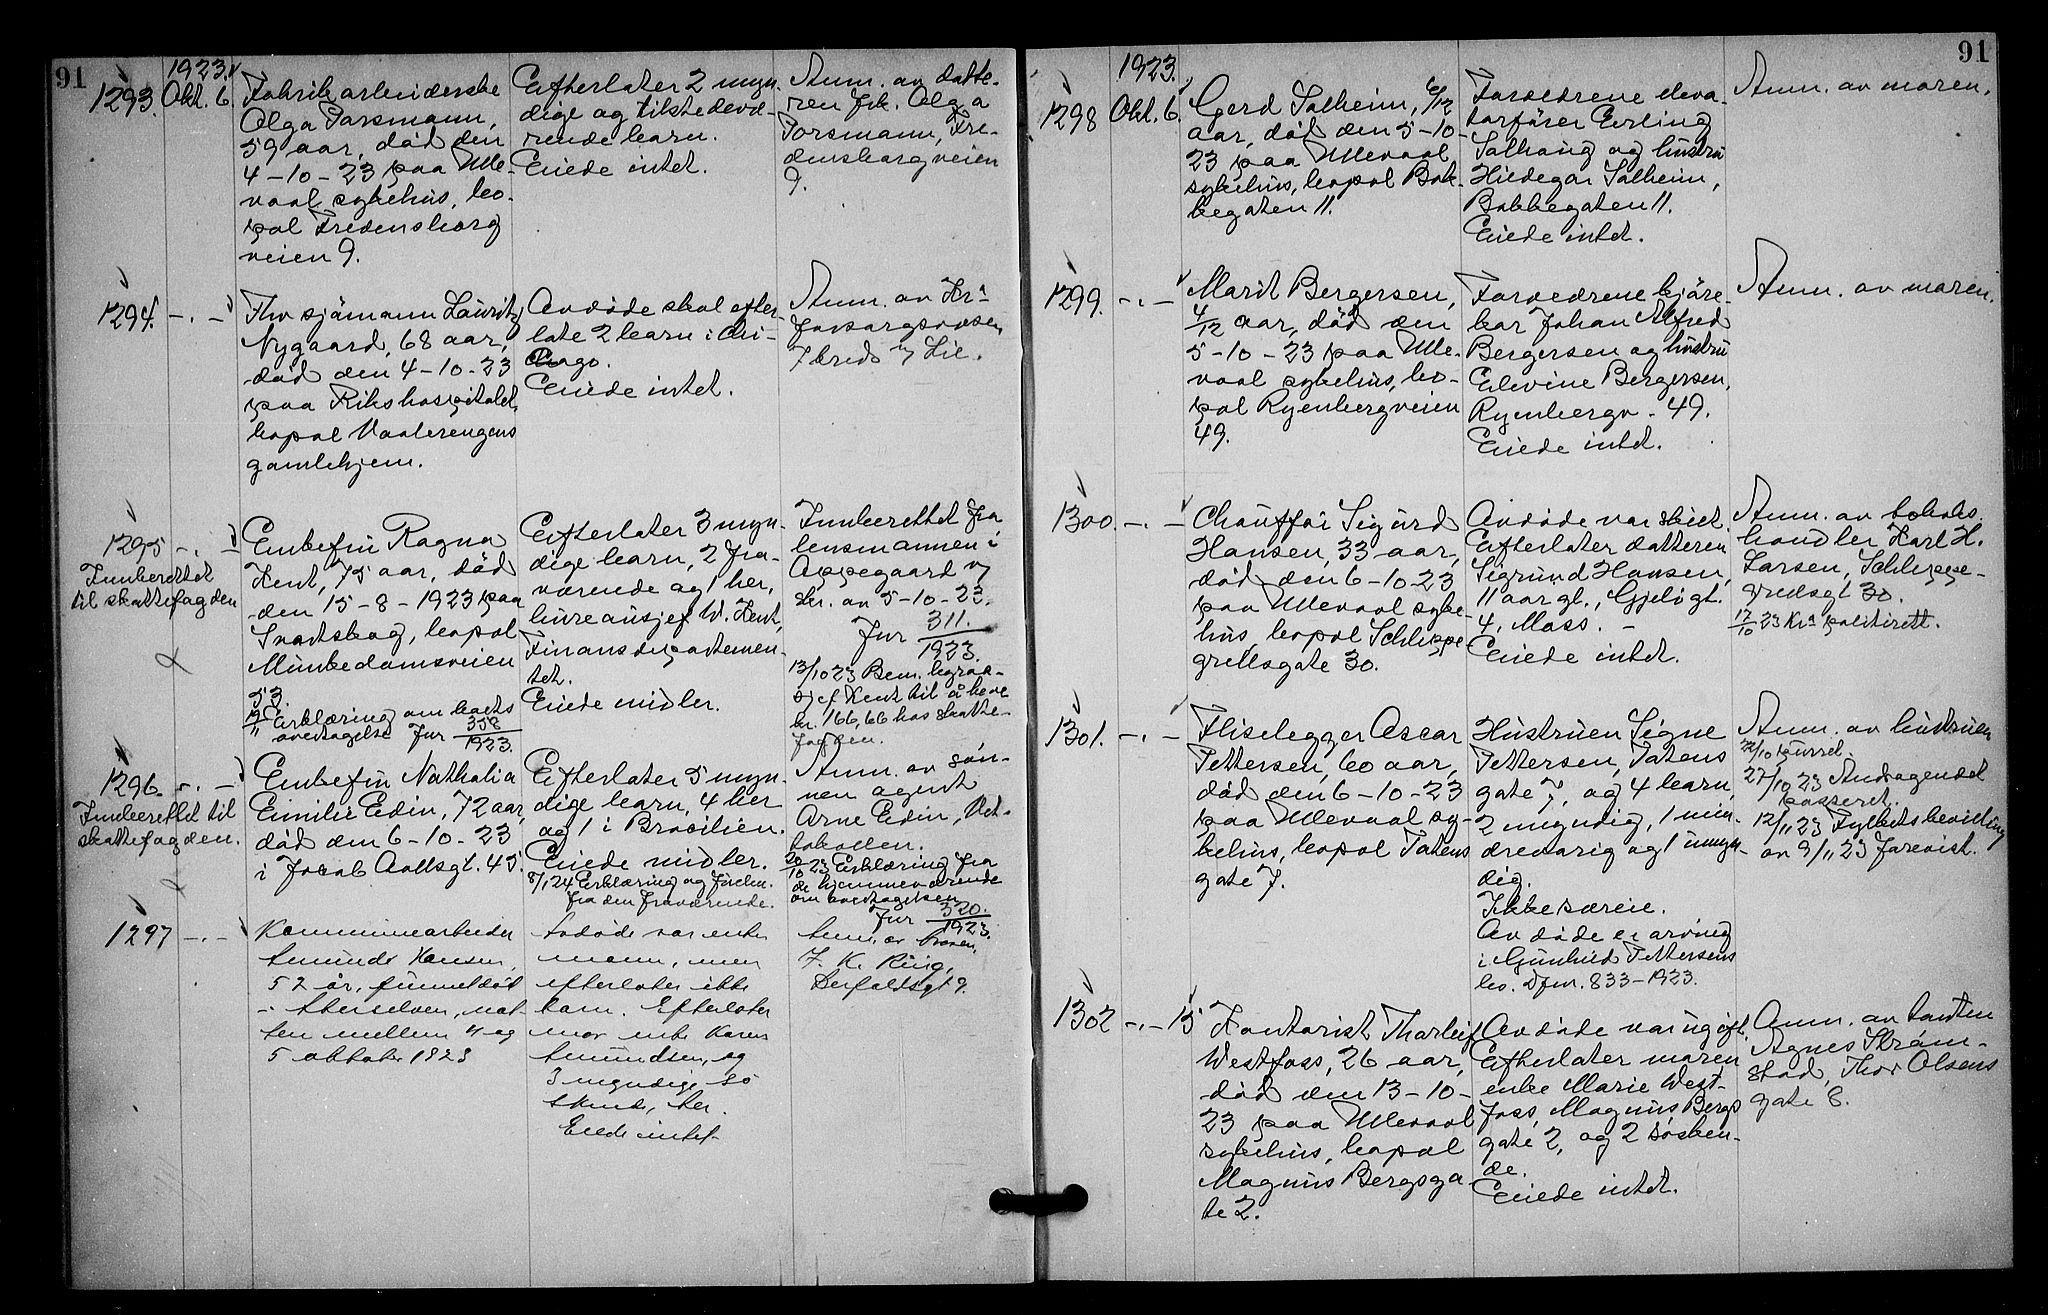 91
1923.
1293.
Okt. 6.
Fabrikarbeiderske
Olga Torsmann,
59 aar, død den
4-10-23 paa Ulle-
vaal sykehus, bo-
pal Fredensborg
veien 9.
Efterlater 2 myn-
dige og tilstedevæ-
rende barn.
Eiede intet.
Anm. av datte-
ren frk. Olga
Torsmann, Fre-
densborgveien
9.
1294. -.-
Fhv sjømann Lauritz
Nygaard, 68 aar,
død den 4-10-23
paa Rikshospitalet,
bopal Vaalerengens
gamlehjem.
Avdøde skal efter-
late 2 barn i Chi-
cago.
Eiede intet.
Anm. av Kra
forsorgsvæsen
7 kreds v/ Lie.
1295 -.-
Innberettet
til skattefogden
Enkefru Ragna
Kent, 75 aar, død
den 15-8-1923 paa
Svartskog, bopal
Munkedamsveien
53.
Erklæring om boets
overtagelse Jnr 358/1923.
Efterlater 3 myn-
dige barn, 2 fra-
værende og 1 her,
bureausjef W. Kent,
Finansdepartemen-
tet.
Eiede midler.
Innberettet fra
lensmannen i
Oppegaard v/
skr. av 5-10-23.
Jnr 311./1923.
13/10 23 Bem. byraa-
sjef Kent til å heve
kr. 166,66 hos skatte-
fogden.
1296. -.-
Innberettet til
skattefogden.
Enkefru Nathalia
Emilie Edin, 72 aar,
død den 6-10-23
i Jacob Aallsgt. 45.
Efterlater 5 myn-
dige barn, 4 her
og 1 i Brasilien.
Eiede midler.
8/1 24 Erklæring og
fra den fraværende.
Anm. av søn-
nen agent
Arne Edin, Hol-
tekollen.
20/10 23 Erklæring fra
de hjemmeværende
om overtagelsen
Jnr 320./1923.
1297 -.-
Kommunearbeider
Amund Hansen,
52 år, funnet død
i Akerselven, nat-
ten mellem 4 og
5 oktober 1923
Avdøde var enke-
mann, men
efterlater ikke
barn. Efterlater
mor enke Karen
Amundsen, og
3 myndige sø
skende, her.
Eiede intet.
Anm. av
J. K. Ring,
9.
91
1923.
1298 Okt. 6.
Gerd Solheim, 6/12
aar, død den 5-10-
23 paa Ullevaal
sykehus, bopal Bak-
kegaten 11.
Forældrene eleva-
torfører Erling
Solhaug og hustru
Hildegar Solheim,
Bakkegaten 11.
Eiede intet.
Anm. av moren.
1299. -.-
Marit Bergersen,
4/12 aar, død den
5-10-23 paa Ulle-
vaal sykehus, bo-
pal Ryenbergveien
49.
Forældrene kjøre-
kar Johan Alfred
Bergersen og hustru
Elevine Bergersen,
Ryenbergv. 49.
Eiede intet.
Anm. av moren.
1300. -.-
Chauffør Sigurd
Hansen, 33 aar,
død den 6-10-23
paa Ullevaal syke-
hus, bopal Schleppe
grellsgate 30.
Avdøde var skilt.
Efterlater datteren
Sigrund Hansen,
11 aar gl., Gjeløgt.
4, Moss. -
Eiede intet.
Anm. av tobaks-
handler Karl H.
Larsen, Schleppe-
grellsgt 30.
17/10 23 Kra politirett.
1301. -.-
Fliselegger Oscar
Pettersen, 60 aar,
død den 6-10-23
paa Ullevaal sy-
kehus, bopal Totens
gate 7.
Hustruen Signe
Pettersen, Totens
gate 7, og 4 barn,
2 myndig, 1 min-
dreaarig og 1 umyn-
dig.
Ikke særeie.
Avdøde er arving
i Gunhild Pettersens
bo. Dfnr. 833-1923.
Anm. av hustruen
27/10 23 Andragendet
passeret.
12/11 23 Fylkets bevilling
av 9/11 23 forevist.
1302 -.- 15
Kontorist Thorleif
Westfoss, 26 aar,
død den 13-10-
23 paa Ullevaal
sykehus, bopal
Magnus Bergsga
te 2.
Avdøde var ugift.
Efterlater moren
enke Marie West-
foss, Magnus Bergs
gate 2, og 2 søsken-
de.
Eiede intet.
Anm. av tanten
Agnes Strøm-
stad, Thor Olsens
gate 8.